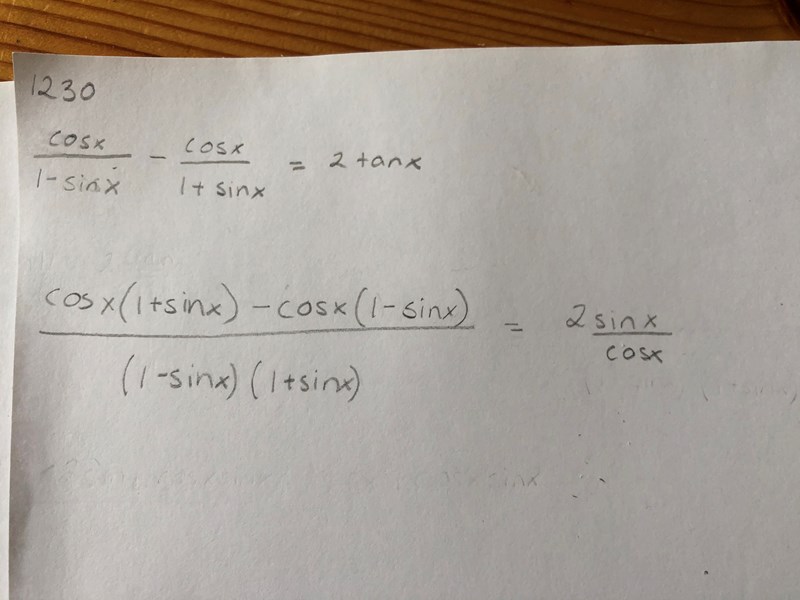 1230
cosx/1-sinx - cosx/1+sinx = 2tanx
cosx(1+sinx)-cosx(1-sinx)/(1-sinx)(1+sinx) = 2 sinx/cosx